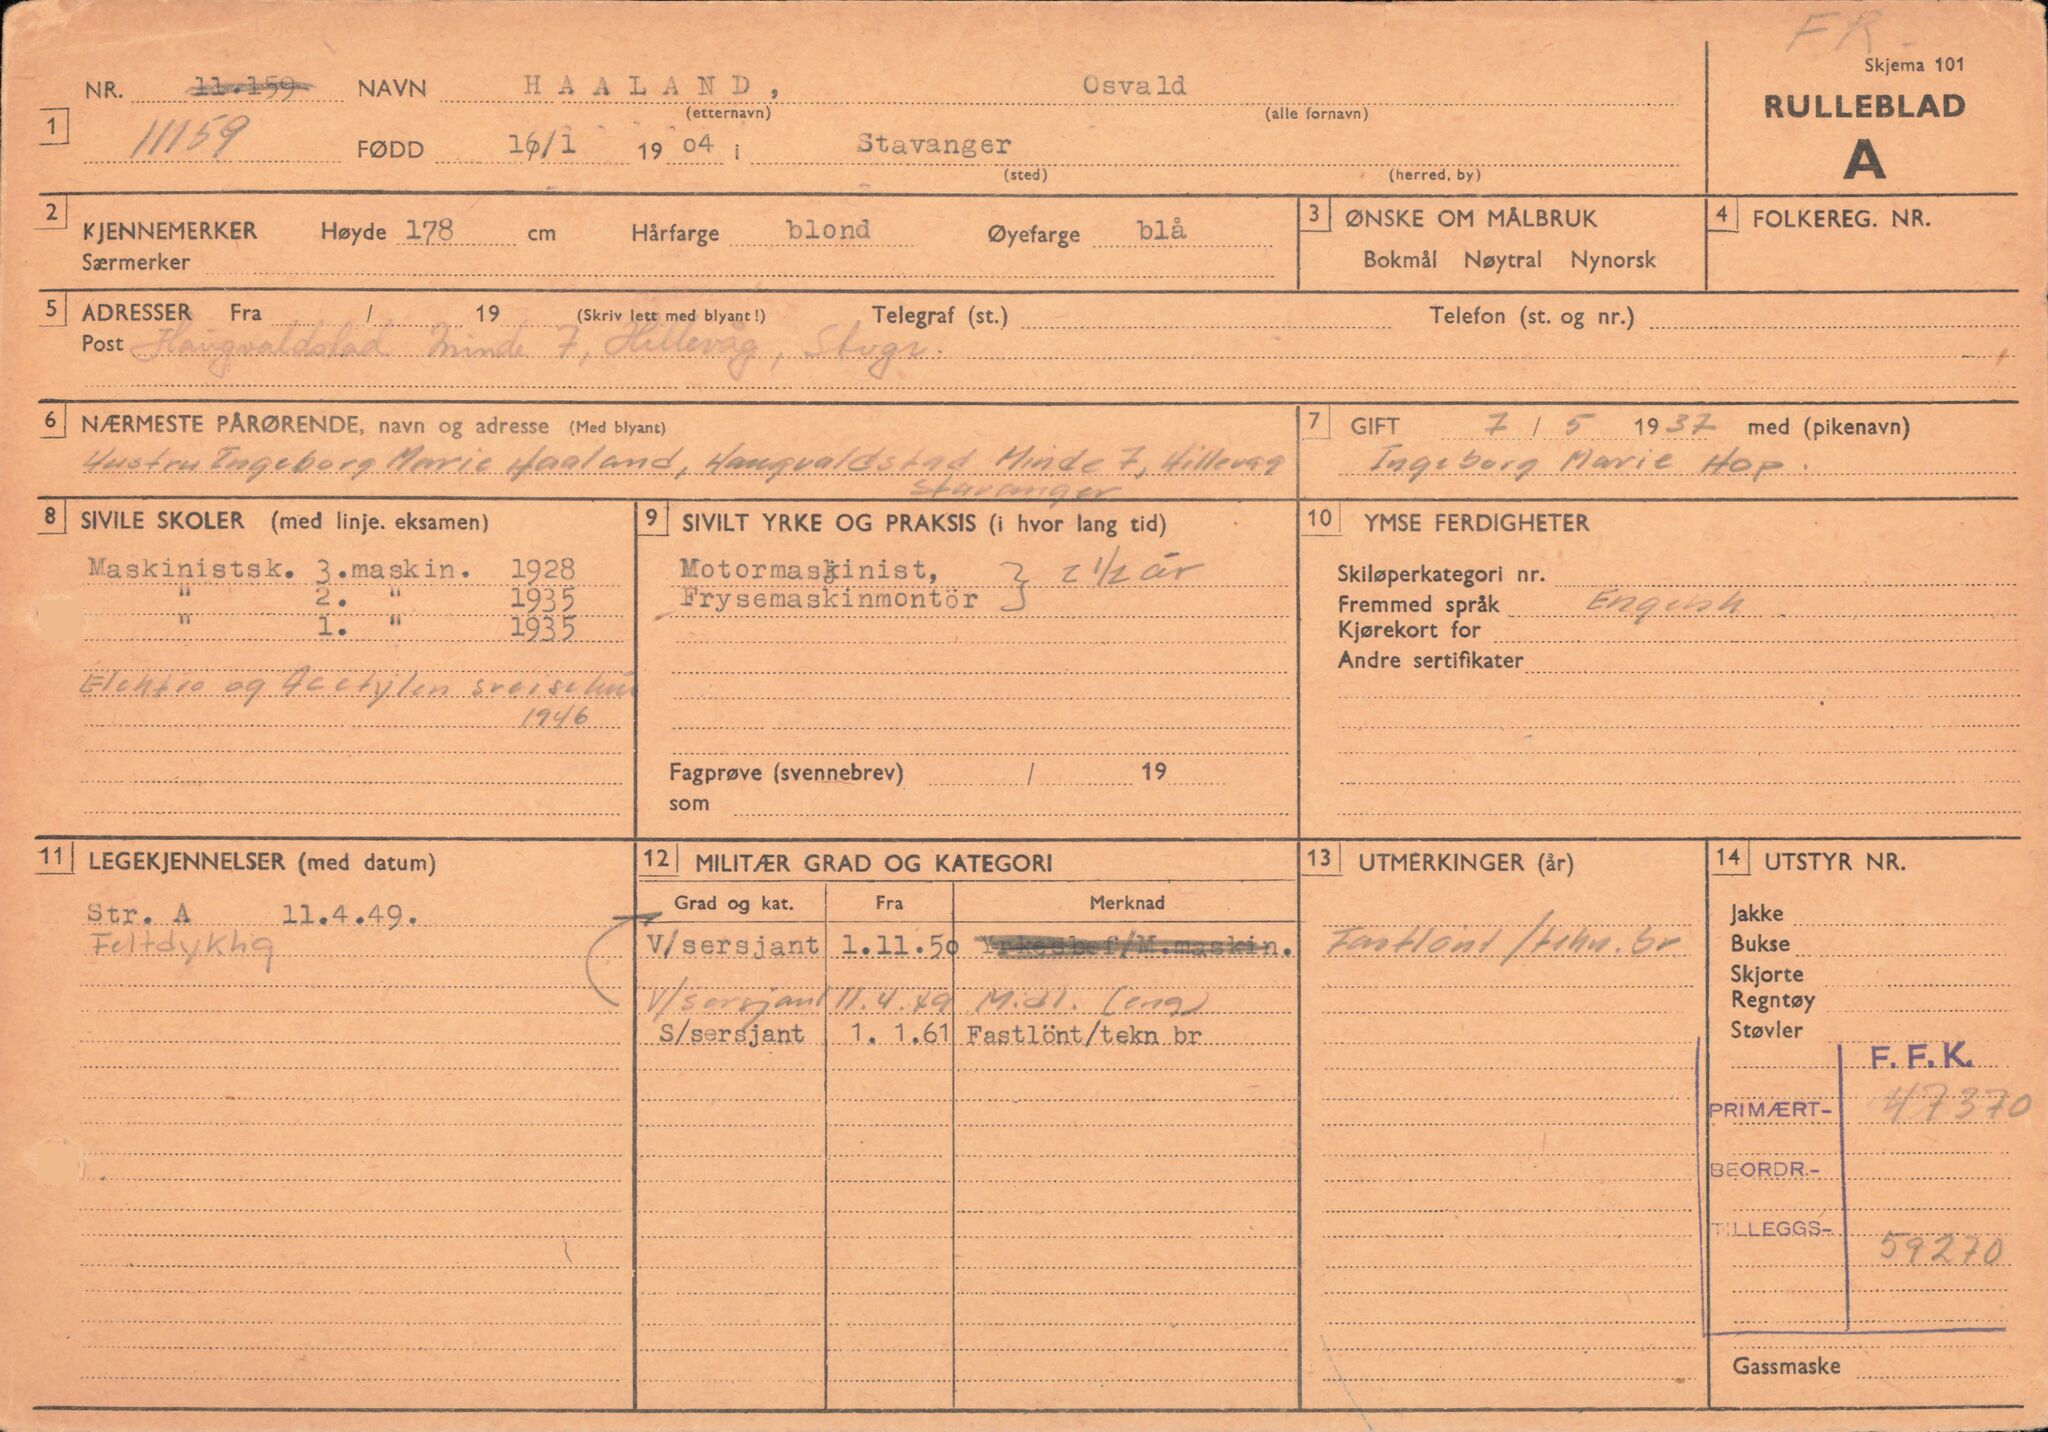 FR
Skjema 101
RULLEBLAD
A
1
NR. 11.159 NAVN HAALAND, Osvald
(etternavn) (alle fornavn)
11159 FØDD 16/1 1904 i Stavanger
(sted) (herred, by)
2 KJENNEMERKER Høyde 178 cm Hårfarge blond Øyefarge blå
Særmerker
3 ØNSKE OM MÅLBRUK
Bokmål Nøytral Nynorsk
4 FOLKEREG. NR.
5 ADRESSER Fra / 19 (Skriv lett med blyant!) Telegraf (st.) Telefon (st. og nr.)
Post Haugvaldstad Minde 7, Hillevåg, Stvgr.
6 NÆRMESTE PÅRØRENDE, navn og adresse (Med blyant)
Hustru Ingeborg Marie Haaland, Haugvaldstad Minde 7, Hillevåg
Stavanger
7 GIFT 7 / 5 1937 med (pikenavn)
Ingeborg Marie Hop.
8 SIVILE SKOLER (med linje. eksamen)
Maskinistsk. 3.maskin. 1928
" 2. " 1935
" 1. " 1935
Elektro og Acetylen
1946
9 SIVILT YRKE OG PRAKSIS (i hvor lang tid)
Motormaskinist, } 2 1/2 år
Frysemaskinmontör
Fagprøve (svennebrev) / 19
som
10 YMSE FERDIGHETER
Skiløperkategori nr.
Fremmed språk Engelsk
Kjørekort for
Andre sertifikater
11 LEGEKJENNELSER (med datum)
Str. A 11.4.49.
Feltdykhg
12 MILITÆR GRAD OG KATEGORI
Grad og kat. Fra Merknad
V/sersjant 1.11.50 Yrkesbef/M.maskin.
V/sersjant 11.4.49 Midl. (eng)
S/sersjant 1. 1.61 Fastlönt/tekn br
13 UTMERKINGER (år)
Fastlönt / tekn. br
14 UTSTYR NR.
Jakke
Bukse
Skjorte
Regntøy
Støvler
F. F. K.
PRIMÆRT- 47370
BEORDR.-
TILLEGGS- 59270
Gassmaske